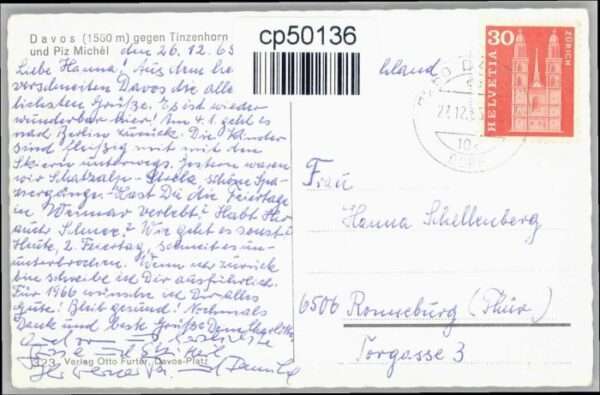 Davos (1560 m) gegen Tinzenhorn
und Piz Michèl
den 26.12.65
Liebe Hanna! Aus dem
verschneiten Davos die aller-
lichsten Grüße. Es ist wieder
wunderbar hier! Am 4.1. geht es
nach Berlin zurück. Die Kinder
sind fleißig mit mit den
Skiern unterwegs. Gestern waren
wir Schatzalp - schöne Spa-
ziergänge. Hast Du die Feiertage
in Weimar verlebt? Habt Ihr
auch Schnee? Wie geht es sonst?
Heute, 2. Feiertag, schneit es un-
unterbrochen. Wenn wir zurück
bin schreibe ich Dir ausführlich.
Für 1966 wünsche ich Dir alles
Gute! Bleib gesund! Nochmals
Dank und beste Grüße
323 Verlag Otto Furter, Davos-Platz
cp50136
30
HELVETIA
ZÜRICH
Frau
Hanna Schellenberg
6506 Ronneburg (Thür.)
Torgasse 3